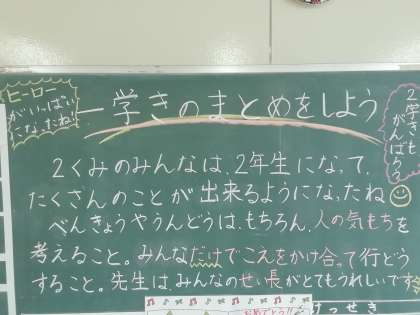 ヒーロー
がいっぱい
になったね!
一学きのまとめをしよう
2学きも
がんばろう
2くみのみんなは、2年生になって、
たくさんのことが出来るようになったね
べんきょうやうんどうは、もちろん、人の気もちを
考えること。みんなだけでこえをかけ合って行どう
すること。先生は、みんなのせい長がとてもうれしいです
おめでとう!!
けっせき